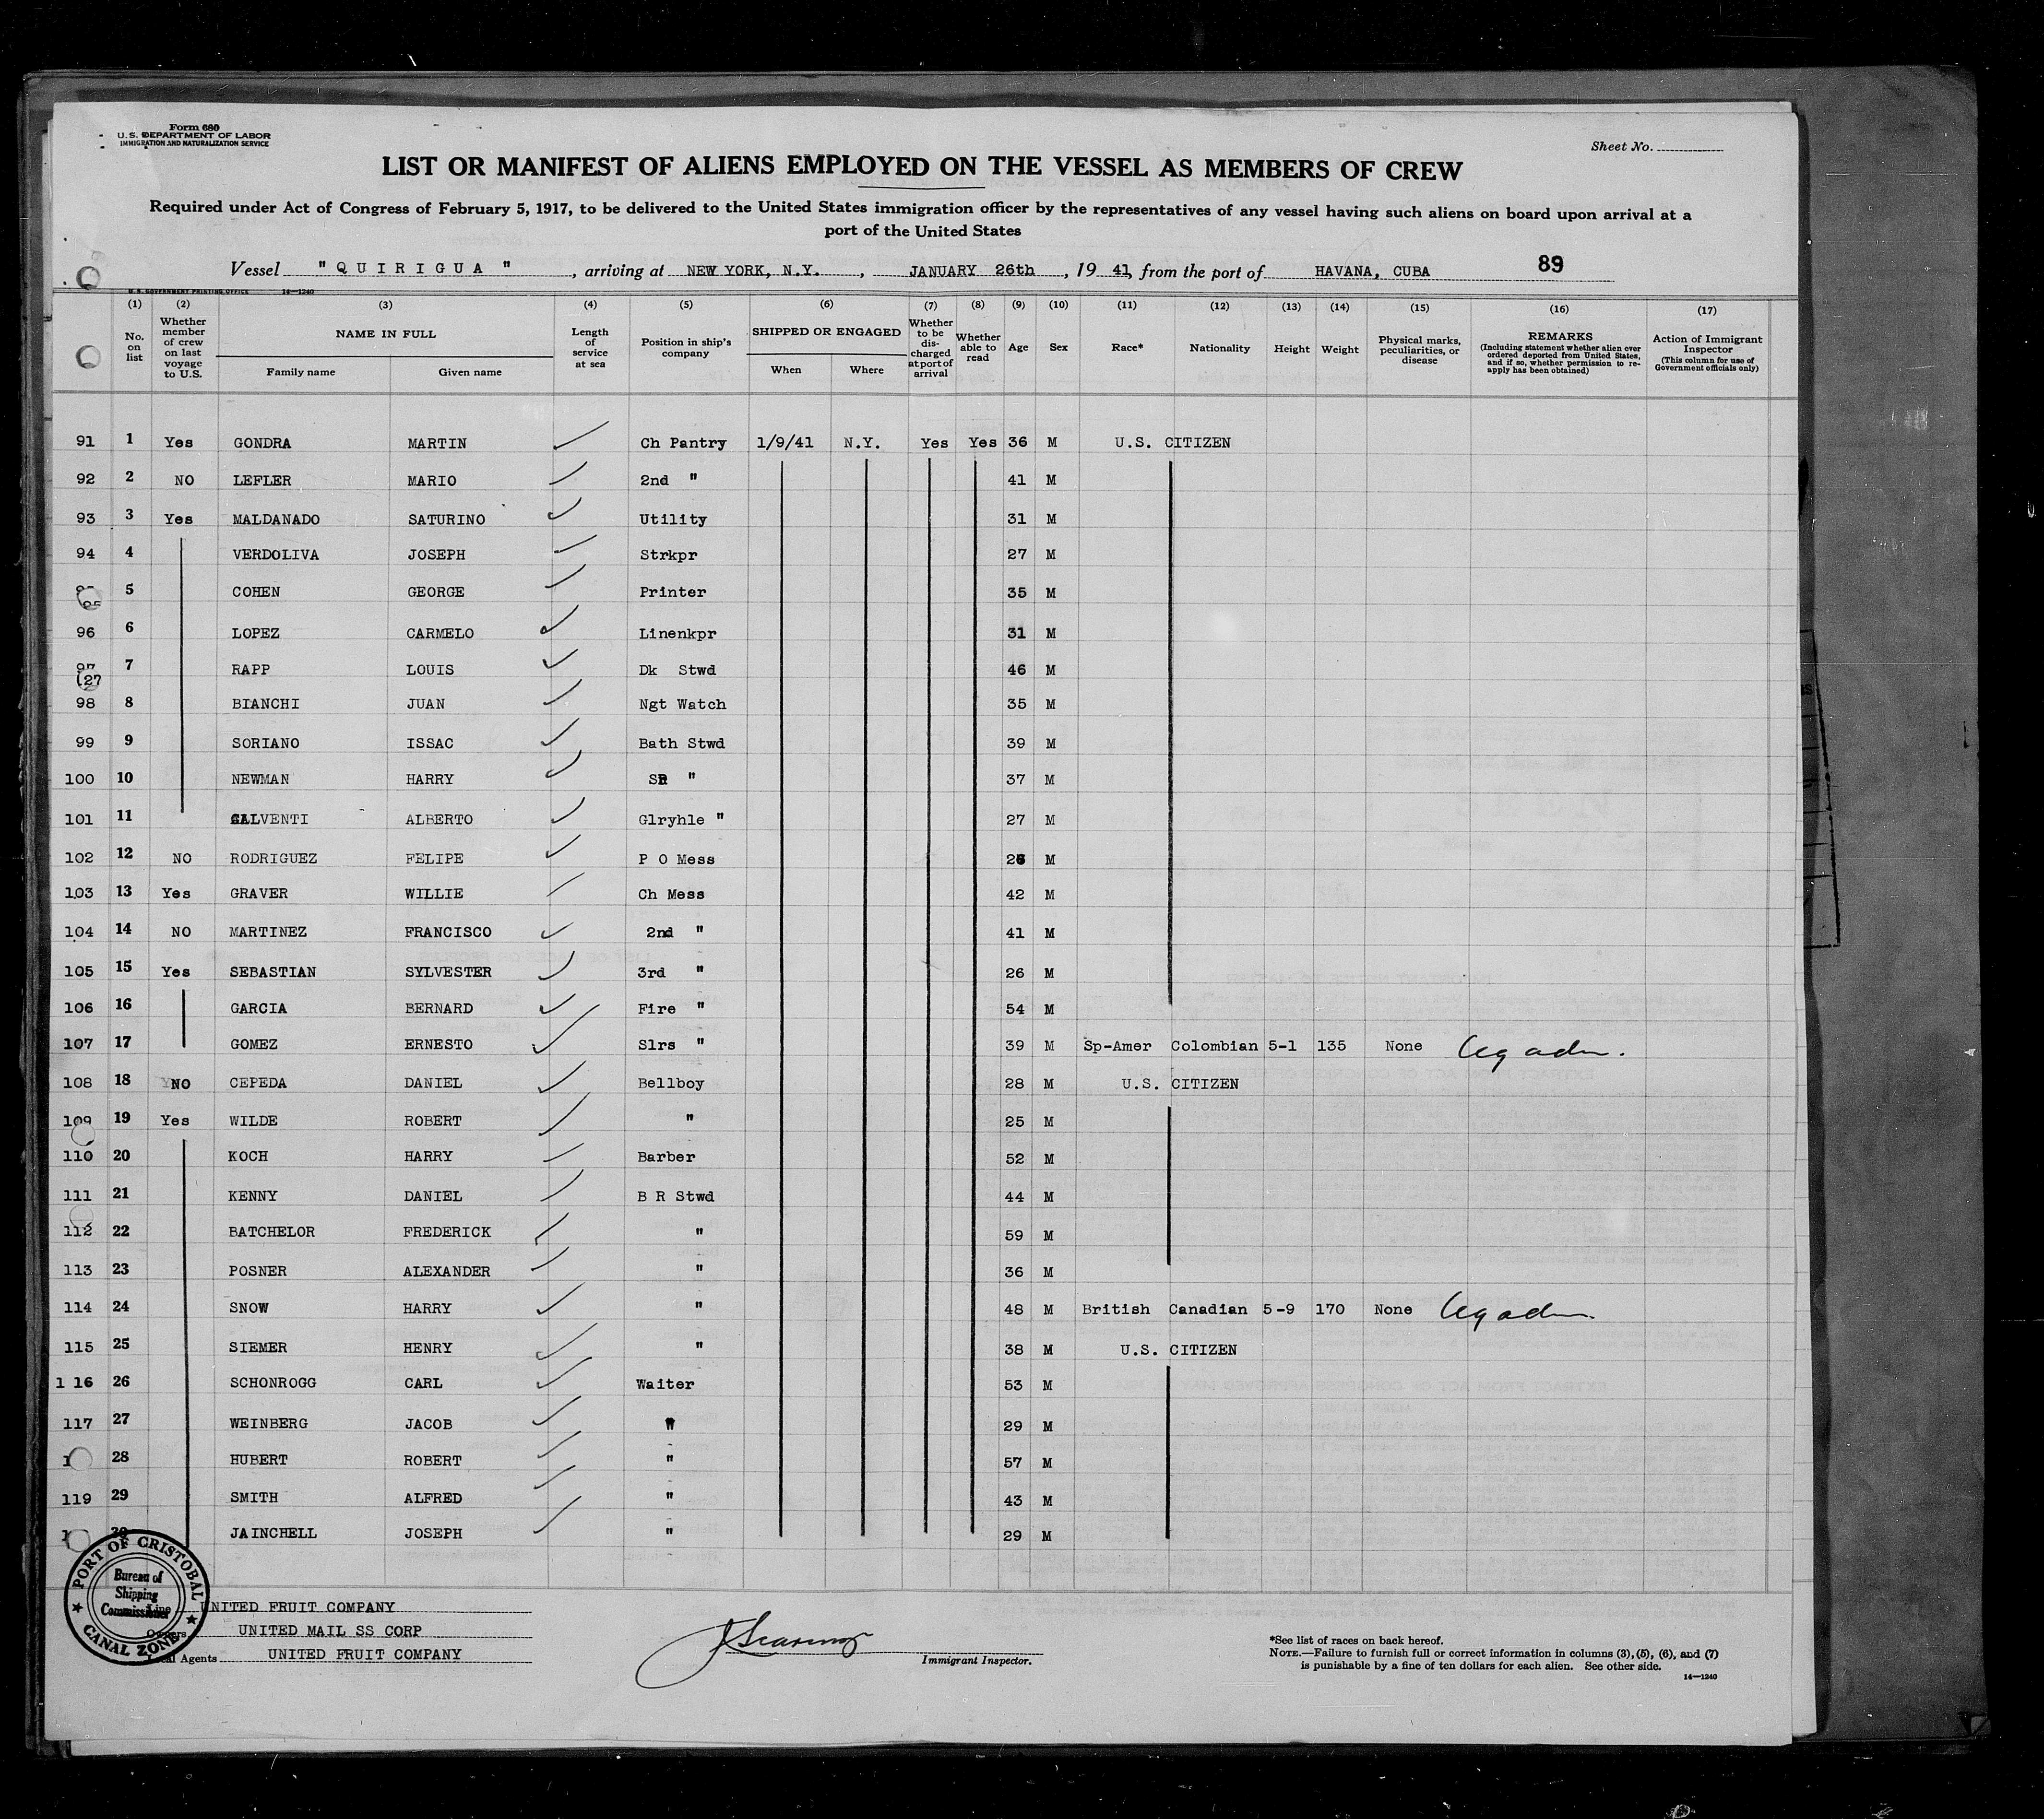 Form 680
U. S. DEPARTMENT OF LABOR
IMMIGRATION AND NATURALIZATION SERVICE
Sheet No.
LIST OR MANIFEST OF ALIENS EMPLOYED ON THE VESSEL AS MEMBERS OF CREW
Required under Act of Congress of February 5, 1917, to be delivered to the United States immigration officer by the representatives of any vessel having such aliens on board upon arrival at a
port of the United States
Vessel " Q U I R I G U A ", arriving at NEW YORK, N.Y., JANUARY 26th, 19 41, from the port of HAVANA, CUBA 89
U. S. GOVERNMENT PRINTING OFFICE 14—1240
(1) (2) (3) (4) (5) (6) (7) (8) (9) (10) (11) (12) (13) (14) (15) (16) (17)
No. on list
Whether member of crew on last voyage to U.S.
NAME IN FULL
Family name Given name
Length of service at sea
Position in ship's company
SHIPPED OR ENGAGED
When Where
Whether to be dis-charged at port of arrival
Whether able to read
Age
Sex
Race*
Nationality
Height
Weight
Physical marks, peculiarities, or disease
REMARKS
(Including statement whether alien ever ordered deported from United States, and if so, whether permission to re-apply has been obtained)
Action of Immigrant Inspector
(This column for use of Government officials only)
91 1 Yes GONDRA MARTIN Ch Pantry 1/9/41 N.Y. Yes Yes 36 M U.S. CITIZEN
92 2 NO LEFLER MARIO 2nd " 41 M
93 3 Yes MALDANADO SATURINO Utility 31 M
94 4 VERDOLIVA JOSEPH Strkpr 27 M
5 COHEN GEORGE Printer 35 M
96 6 LOPEZ CARMELO Linenkpr 31 M
97 7 RAPP LOUIS Dk Stwd 46 M
98 8 BIANCHI JUAN Ngt Watch 35 M
99 9 SORIANO ISSAC Bath Stwd 39 M
100 10 NEWMAN HARRY SR " 37 M
101 11 GALVENTI ALBERTO Glryhle " 27 M
102 12 NO RODRIGUEZ FELIPE P O Mess 26 M
103 13 Yes GRAVER WILLIE Ch Mess 42 M
104 14 NO MARTINEZ FRANCISCO 2nd " 41 M
105 15 Yes SEBASTIAN SYLVESTER 3rd " 26 M
106 16 GARCIA BERNARD Fire " 54 M
107 17 GOMEZ ERNESTO Slrs " 39 M Sp-Amer Colombian 5-1 135 None
108 18 NO CEPEDA DANIEL Bellboy 28 M U.S. CITIZEN
109 19 Yes WILDE ROBERT " 25 M
110 20 KOCH HARRY Barber 52 M
111 21 KENNY DANIEL B R Stwd 44 M
112 22 BATCHELOR FREDERICK " 59 M
113 23 POSNER ALEXANDER " 36 M
114 24 SNOW HARRY " 48 M British Canadian 5-9 170 None
115 25 SIEMER HENRY " 38 M U.S. CITIZEN
1 16 26 SCHONROGG CARL Waiter 53 M
117 27 WEINBERG JACOB " 29 M
28 HUBERT ROBERT " 57 M
119 29 SMITH ALFRED " 43 M
30 JAINCHELL JOSEPH " 29 M
PORT OF CRISTOBAL
Bureau of
Shipping
Commissioner
CANAL ZONE
Line UNITED FRUIT COMPANY
Owners UNITED MAIL SS CORP
Local Agents UNITED FRUIT COMPANY
Immigrant Inspector.
*See list of races on back hereof.
NOTE.—Failure to furnish full or correct information in columns (3), (5), (6), and (7)
is punishable by a fine of ten dollars for each alien. See other side.
14—1240